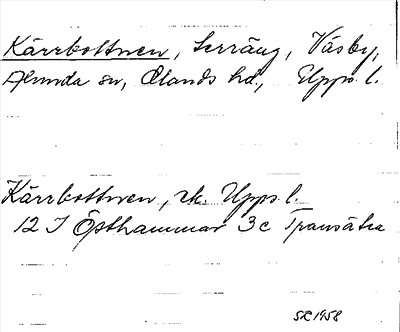 Kärrbottnen, Serräng, Väsby,
Alunda sn, Olands hd., Upps. l.
Kärrbottnen, rk. Upps. l.
12 I Östhammar 3 c Transätra
SR 1958